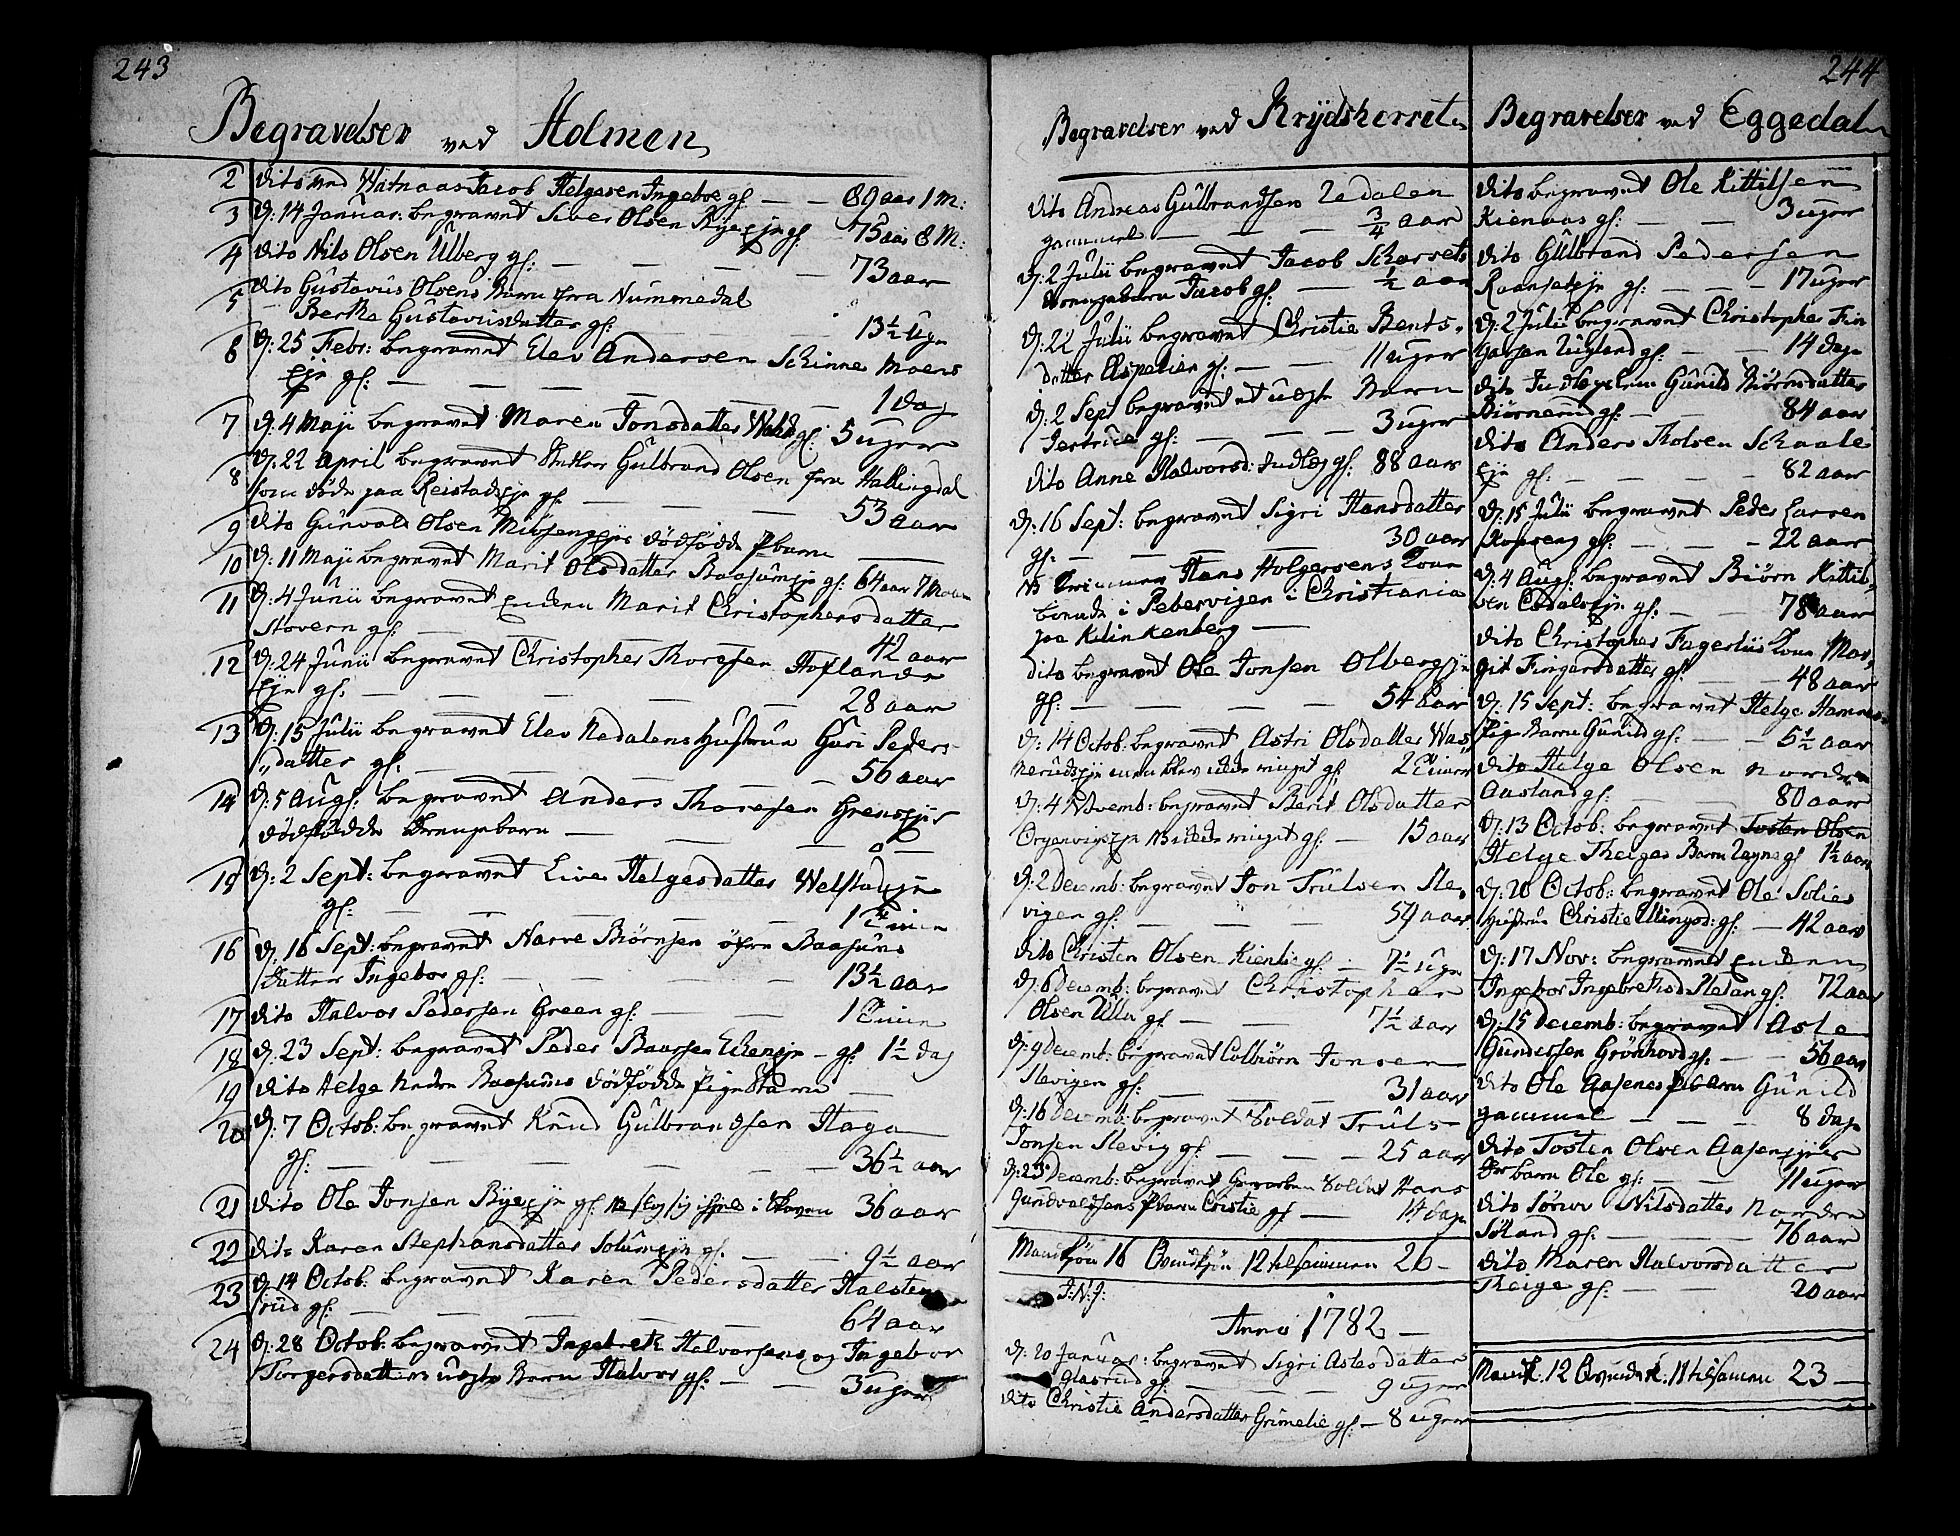 243
Begravelser ved Holmen
2 dito ved Watnaas Jacob Helgesen Ingeboe gl: — — 80 aar 1 M:
3 d: 14 Januar: begravet Siver Olsen Ryeeje gl: 75 aar 8 M:
4 dito Nils Olsen Ulberg gl: — — — — 73 aar
5 dito Gustavus Olsens Barn fra Nummedal
Berthe Gustavusdatter gl: — — 13½ uge
6 d: 25 Febr: begravet Elev Andersen Skinnes Moens
Eje gl: — — — — — 1 dag
7 d: 4 Maji begravet Maren Jonsdatter gl: 5 uger
8 d: 22 April begravet Gulbrand Olsen fra Hallingdal
som døde paa Reistadeje gl: — — — 53 aar
9 dito Gunvald Olsen dødfødde barn —
10 d: 11 Maji begravet Marit Olsdatter Baasumeje gl: 64 aar 7 Maan
11 d: 4 Junii begravet Enken Marit Christophersdatter
Stovern gl: — — — — 42 aar
12 d: 24 Junii begravet Christopher Thoresen Hoflands
Eje gl: — — — — 28 aar
13 d: 15 Julii begravet Elev Nedalens Hustrue Guri Peders
datter gl: — — — — 56 aar
14 d: 5 Aug: begravet Anders Thoresen Grensejes
dødfødde Drengebarn — — 0 —
15 d: 2 Sept: begravet Live Helgesdatter Welstadeje
gl: — — — — 1 Time
16 d: 16 Sept: begravet Narve Biørnsen øfre Baasums
Datter Ingebor gl: — — — 13½ aar
17 dito Halvor Pedersen Green gl: — — 1 Time
18 d: 23 Sept: begravet Peder Baarsen gl: 1½ dag
19 dito Helge Nedre Baasums dødfødde Pigebarn —
20 d: 7 Octob: begravet Knud Gulbrandsen Haga
gl: — — — — — 36½ aar
21 dito Ole Jonsen Ryeeje gl: ihjel i Skoven 36 aar
22 dito Karen Stephansdatter Solumeje gl: — — 9½ aar
23 d: 14 Octob: begravet Karen Pedersdatter Halsten
rud gl: — — — — 64 aar
24 d: 28 Octob: begravet Ingebreth Halvorsens og Ingebor
Torgersdatters uægte Barn Halvor gl: — — 3 uger
Begravelser ved Krydsherret
dito Andreas Gulbrandsen Nedalen
gammel — — — ¾ aar
d: 2 Julii begravet Jacob Skarsets
Drengebarn Jacob gl: — ½ aar
d: 22 Julii begravet Christie Bents-
datter Aspelien gl: — — 11 uger
d: 2 Sept begravet et uægte Barn
Jertrue gl: — — — 3 uger
dito Anne Halvorsd: Indleg gl: 88 aar
d: 16 Sept: begravet Sigri Hansdatter
gl: — — — — 30 aar
NB Hans Holgersens Kone
boende i Pebervigen i Christiania
paa Klinkenberg —
dito begravet Ole Jonsen Olbergeje
gl: — — — — 54 aar
d: 14 Octob: begravet Astri Olsdatter Was
nerudeje men blev ikke ringet gl: 2 Timer
d: 4 Novemb: begravet Berit Olsdatter
NB ikke ringet gl: — 15 aar
d: 2 Decemb: begravet Jon Trulsen Sle-
vigen gl: — — — 59 aar
dito Christen Olsen Kienlie gl: — 7½ uge
d: 6 Decemb: begravet Christopher
Olsen Ulle gl: — — 7½ aar
d: 9 Decemb: begravet Colbiørn Jonsen
Slevigen gl: — — — 31 aar
d: 16 Decemb: begravet Soldat Truls
Jonsen Slevig gl: — — 25 aar
d: 23 Decemb: begravet Geworben Soldat Hans
Gundvaldsens Pbarn Cristie gl: — 14 dage
Mandkjøn 16 Qvindkjøn 12 tilsammen 26 —
J: N: J:
Anno 1782 —
d: 20 Januar: begravet Sigri Aslesdatter
Glasrud gl: — — — 9 uger
dito Christie Andersdatter Grimelie gl: — 8 uger
244
Begravelser ved Eggedal
dito begravet Ole Kittilsen
Kienaas gl: — — 3 uger
dito Gulbrand Pedersen
Raanseteje gl: — — — 17 uger
d: 2 Julii begravet Christopher Fin
garsen Lügland gl: — — 14 dage
dito Indlegslem Gunild Biørnsdatter
Biørnerud gl: — — 84 aar
dito Anders Tholsen Skaale
Eje gl: — — — — 82 aar
d: 15 Julii begravet Peder Larsen
Kopseng gl: — — — 22 aar
d: 4 Aug: begravet Biørn Kittil-
sen gl: — — 78 aar
dito Christopher Fagerliis Kone Mar-
git Fingarsdatter gl: — — 48 aar
d: 15 Sept: begravet Helge Hammers-
Pige Barn Gunild gl: — — 5½ aar
dito Helge Olsen Nordre
Aasland gl: — — — 80 aar
d: 13 Octob: begravet Tosten Olsen
Helge Theiges Barn gl: 1½ aar
d: 20 Octob: begravet Ole Solies
Hustrue Christie Ellingsd: gl: — 42 aar
d: 17 Nov: begravet Enken
Ingebor Ingebrethsd Medan gl: 72 aar
d: 15 Decemb: begravet Asle
Gundersen Grønhovd gl: — — 56 aar
dito Ole Aasenes Pbarn Gunild
gammel — — — 8 dage
dito Tosten Olsen Aasenejes
Drbarn Ole gl: — — — 11 uger
dito Nilsdatter Nordre
Søland gl: — — — 76 aar
dito Maren Halvorsdatter
Theige gl: — — — 20 aar
Mandk: 12 Qvindek: 11 tilsammen 23 —